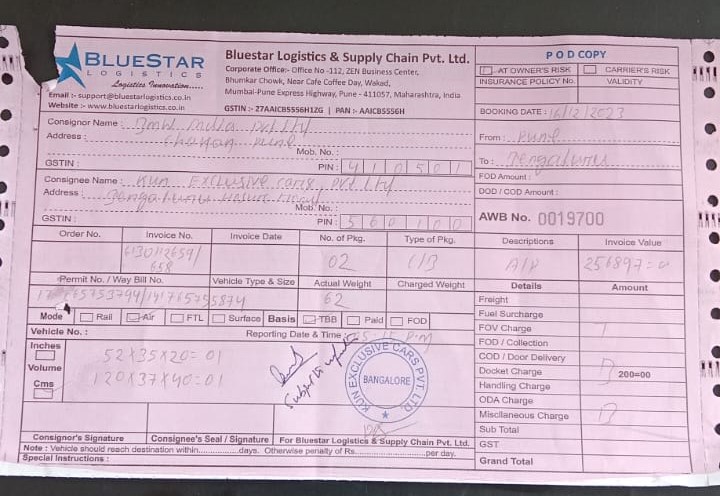 BLUESTAR
LOGISTICS
Logistics Innovation...
Email :- support@bluestarlogistics.co.in
Website :- www.bluestarlogistics.co.in
Bluestar Logistics & Supply Chain Pvt. Ltd.
Corporate Office:- Office No -112, ZEN Business Center,
Bhumkar Chowk, Near Cafe Coffee Day, Wakad,
Mumbai-Pune Express Highway, Pune - 411057, Maharashtra, India
GSTIN :- 27AAICB5556H1ZG | PAN :- AAICB5556H
POD COPY
AT OWNER'S RISK CARRIER'S RISK
INSURANCE POLICY No. VALIDITY
BOOKING DATE : 16/12/2023
From : Pune
To : Bengaluru
FOD Amount :
DOD / COD Amount :
AWB No. 0019700
Consignor Name : BMW India Pvt Lty
Address : Chakan Pune
Mob. No. :
GSTIN : PIN : 410501
Consignee Name : Kun Exclusive Cars Pvt Lty
Address : Bengaluru Hosur
Mob. No. :
GSTIN : PIN : 560100
Order No. Invoice No. Invoice Date No. of Pkg. Type of Pkg. Descriptions Invoice Value
6130112659/
658 02 C/B A/P 256897=0
Permit No. / Way Bill No. Vehicle Type & Size Actual Weight Charged Weight Details Amount
62
Mode Rail Air FTL Surface Basis TBB Paid FOD
Vehicle No. : Reporting Date & Time :
Inches
Volume
Cms
52X35X20=01
120X37X40=01
KUN EXCLUSIVE CARS PVT. LTD.
BANGALORE
Freight
Fuel Surcharge
FOV Charge
FOD / Collection
COD / Door Delivery
Docket Charge 200=00
Handling Charge
ODA Charge
Miscllaneous Charge
Sub Total
GST
Grand Total
Consignor's Signature Consignee's Seal / Signature For Bluestar Logistics & Supply Chain Pvt. Ltd.
Note : Vehicle should reach destination within..............days. Otherwise penalty of Rs..............per day.
Special Instructions :